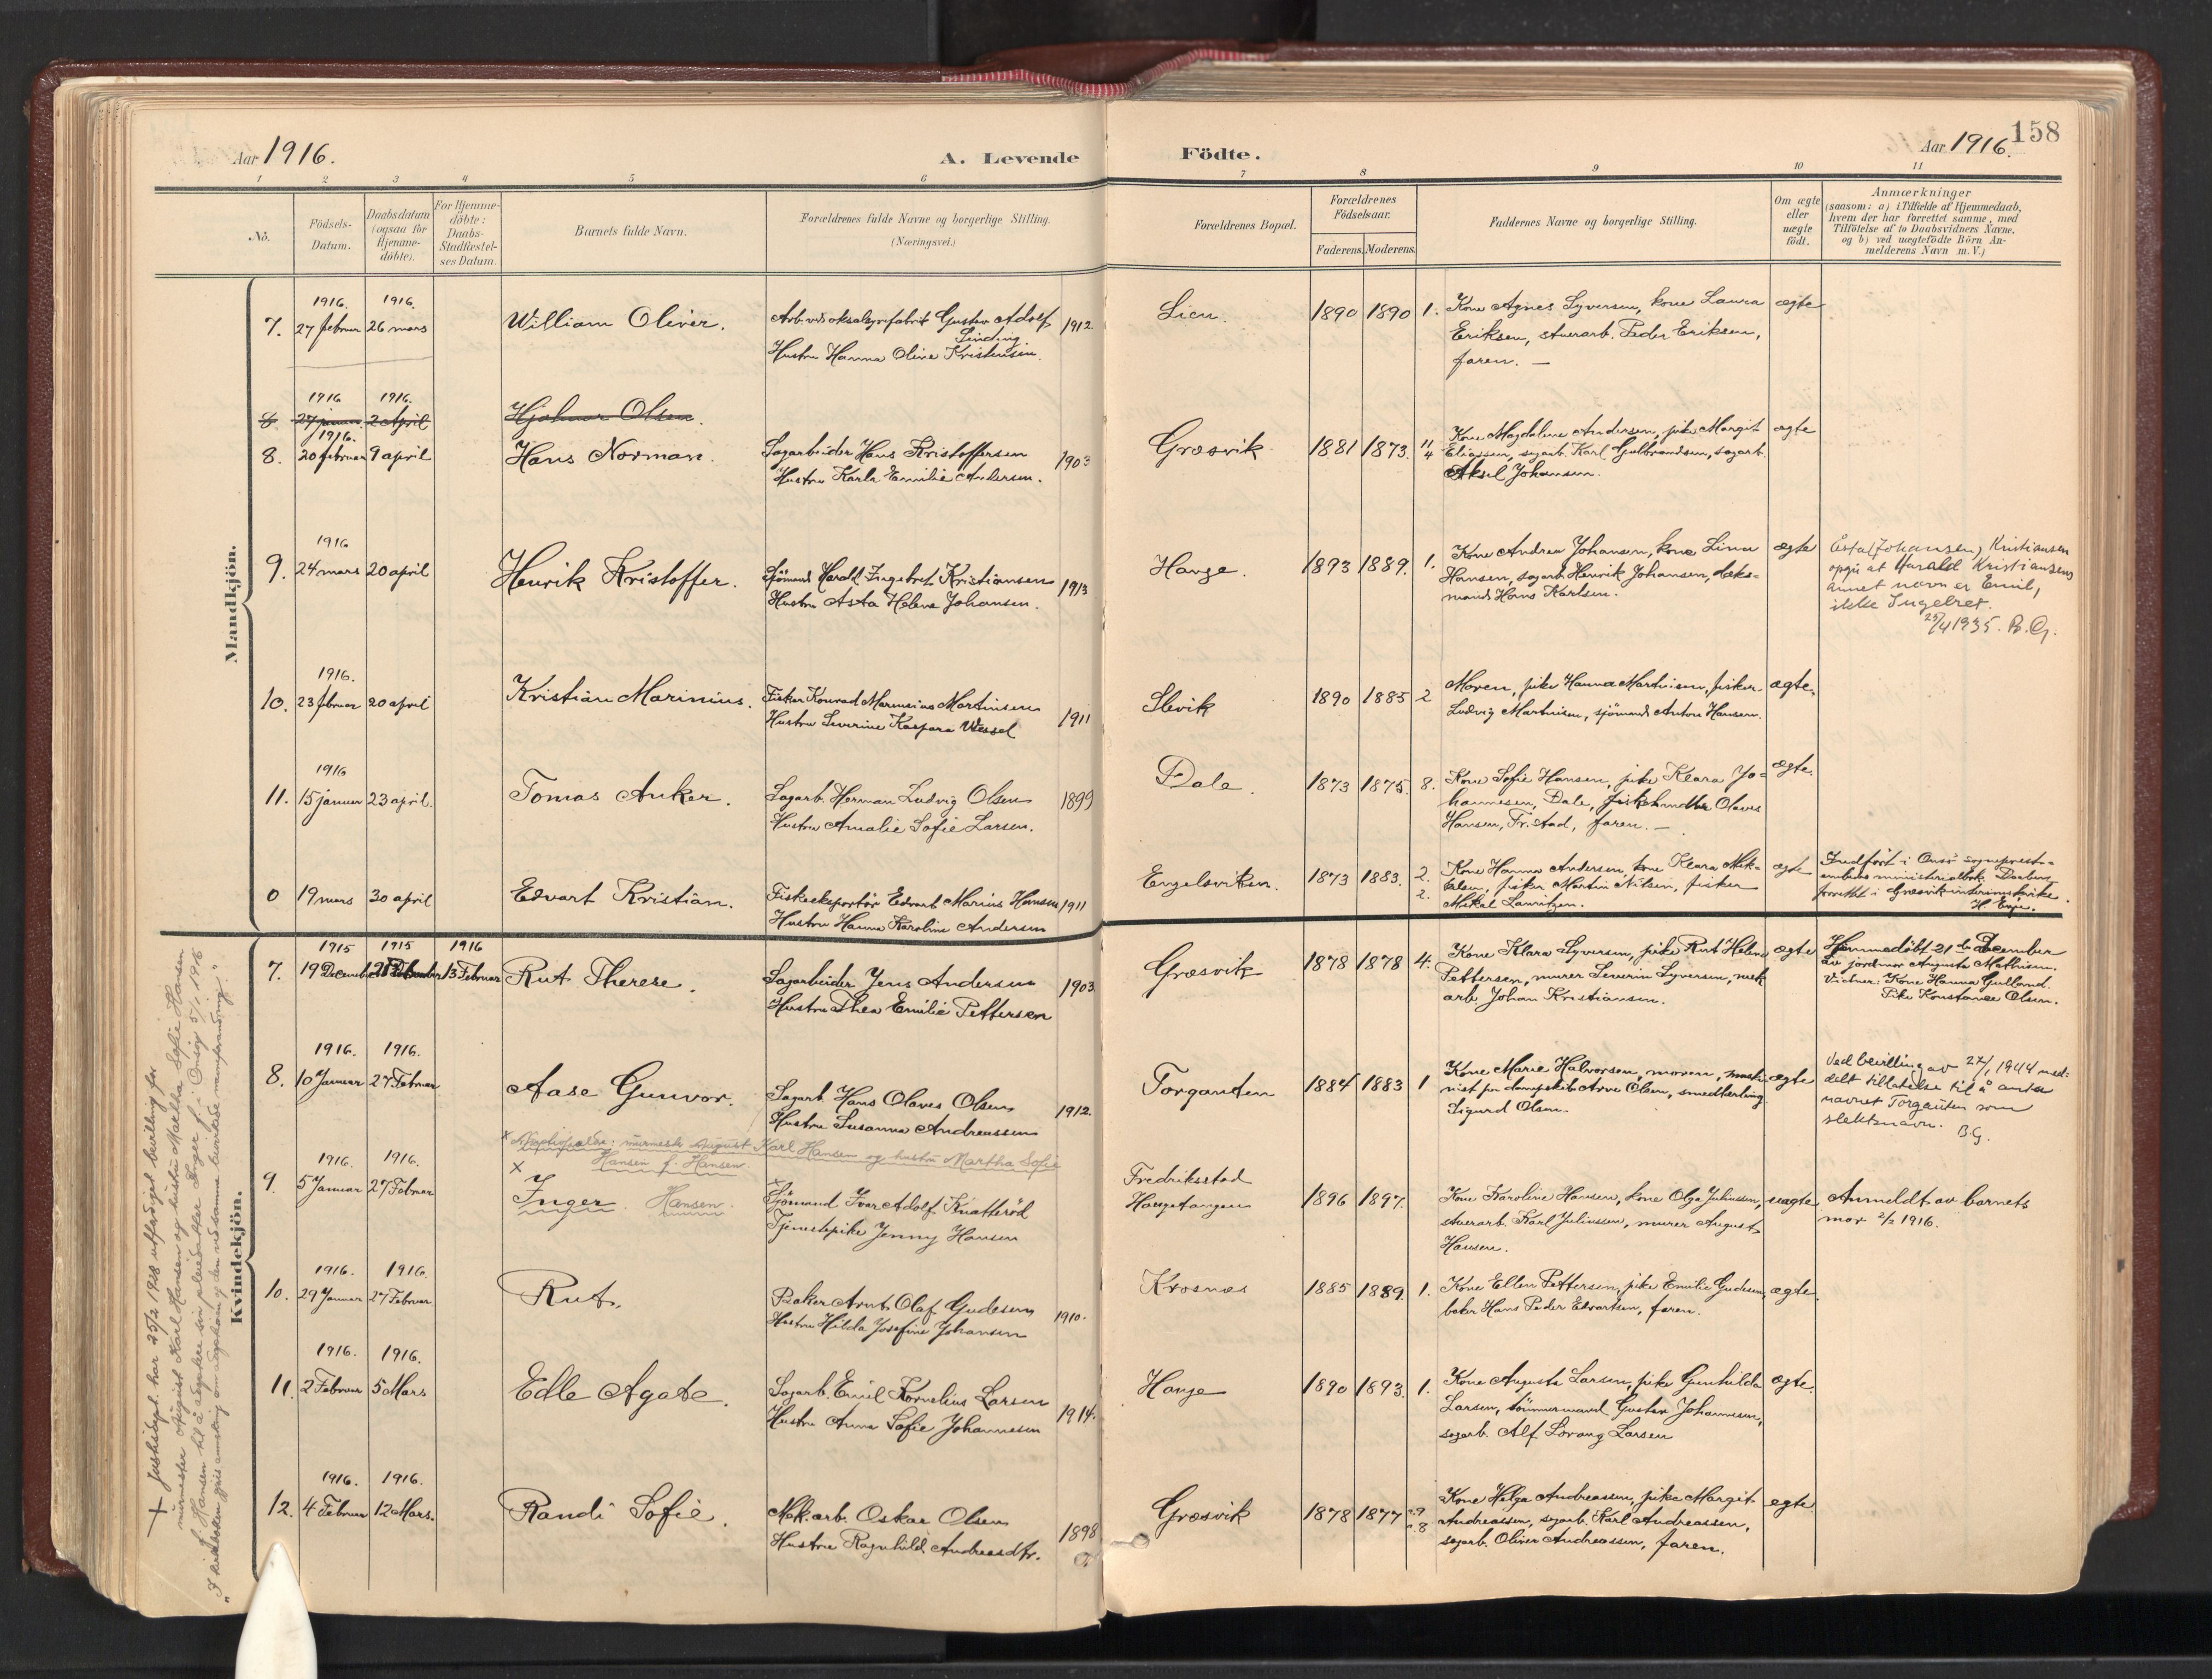 Aar 1916.
A. Levende
Födte.
Aar 1916.
158
1 2 3 4 5 6 7 8 9 10 11
Nō.
Födsels-
Datum.
Daabsdatum
(ogsaa for
Hjemme-
döbte).
For Hjemme-
döbte:
Daabs-
Stadfæstel-
ses Datum.
Barnets fulde Navn.
Forældrenes fulde Navne og borgerlige Stilling.
(Næringsvei.)
Forældrenes Bopæl.
Forældrenes
Födselsaar.
Faderens. Moderens.
Faddernes Navne og borgerlige Stilling.
Om ægte
eller
uægte
födt.
Anmærkninger
(saasom: a) i Tilfælde af Hjemmedaab,
hvem der har forrettet samme, med
Tilföielse af to Daabsvidners Navne,
og b) ved uægtefödte Börn An-
melderens Navn m. V.)
Mandkjön.
1916. 1916.
7. 27 februar 26 mars William Oliver. Arb. ved oksalsyrefabrik Gustav Adolf
Linding 1912.
Hustru Hanna Oline Kristensen.
Lien. 1890 1890 1. Kone Agnes Syversen, kone Laura
Eriksen, stuerarb. Peder Eriksen,
faren. —
ægte
1916 1916.
8 27 januar 2 April Hjalmar Olsen.
1916.
8. 20 februar 9 april Hans Norman. Sagarbeider Hans Kristoffersen 1903
Hustru Karla Emilie Andersen.
Græsvik 1881 1873. 11 4 Kone Magdalene Andersen, pike Margit
Eliassen, sagarb. Karl Gulbrandsen, sagarb.
Aksel Johansen.
ægte
1916
9. 24 mars 20 april Henrik Kristoffer. Sjömand Harald Ingebret Kristiansen 1913
Hustru Asta Helene Johansen.
Hauge. 1893 1889. 1. Kone Andrea Johansen, kone Lina
Hansen, sagarb. Henrik Johansen, dæks-
mand Hans Karlsen.
ægte
Kristiansen
opgir at Harald Kristiansens
annet navn er Emil,
ikke Ingebret.
29/4 1935. B.G.
1916.
10. 23 februar 20 april Kristian Marinius. Fisker Konrad Marensius Martinsen 1911
Hustru Severine Kaspara Wessel
Slevik 1890 1885 2 Moren, pike Hanna Martinsen, fisker
Ludvig Martinsen, sjömand Anton Hansen.
ægte.
1916
11. 15 januar 23 april. Tomas Anker. Sagarb. Herman Ludvig Olsen 1899
Hustru Amalie Sofie Larsen.
Dale. 1873 1875. 8. Kone Sofie Hansen, pike Klara Jo-
hannesen, Dale, fiskehandler Olaves
Hansen, Fr.stad, faren. —
ægte.
0 19 mars 30 april Edvart Kristian. Fiskeeksportör Edvart Marius Hansen 1911
Hustru Hanna Karoline Andersen
Engelsviken. 1873 1883. 2. 2. Kone Hanna Andersen, kone Klara Mik-
kelsen, fisker Martin Nilsen, fisker
Mikal Lauritzen.
ægte
Indfört i Onsö sogneprest-
embeds ministerialbok. Daaben
forrettet i Græsvik interimskirke.
H. Erje.
Kvindekjön.
1915 1915 1916
7. 19 December 21 December 13 Februar Rut Therese. Sagarbeider Jens Andersen 1903
Hustru Thea Emilie Pettersen
Græsvik 1878 1878 4. Kone Klara Syversen, pike Rut Helene
Pettersen, murer Severin Syversen, mek
arb. Johan Kristiansen.
ægte
Hjemmedöbt 21 de December
av jordmor Augusta Mathisen.
Vidner: Kone Hanna Gulland.
Pike Konstance Olsen.
1916. 1916.
8. 10 Januar 27 Februar Aase Gunvor. Sagarb. Hans Olaves Olsen 1912.
Hustru Susanna Andreassen
Torgauten 1884 1883 1 Kone Marie Halvorsen, moren, maski-
nist paa dampskib Arne Olsen, smedlærling
Sigurd Olsen.
ægte
Ved bevilling av 27/1 1944 med-
delt tillatelse til å anta
navnet Torgauten som
slektsnavn. B.G.
x Adoptivforeldre: murmester August Karl Hansen og hustru Martha Sofie
Hansen f. Hansen.
1916. 1916.
9. 5 Januar 27 Februar x Inger Hansen. Sjömand Ivar Adolf Knatteröd
Tjenestepike Jenny Hansen
Fredriksstad
Haugetangen 1896 1897. Kone Karoline Hansen, kone Olga Juliussen,
stuerarb. Karl Juliussen, murer August
Hansen.
uægte
Anmeldt av barnets
mor 2/2 1916.
1916. 1916.
10. 29 Januar 27 Februar Rut. Baker Arnt Olaf Gudesen 1910.
Hustru Hilda Josefine Johansen
Krosnæs 1885 1889. 1. Kone Ellen Pettersen, pike Emilie Gudesen,
baker Hans Peder Edvartsen, faren.
ægte.
1916. 1916.
11. 2 Februar 5 Mars Edle Agate. Sagarb. Emil Kornelius Larsen 1914.
Hustru Anna Sofie Johannesen
Hauge 1890 1893. 1. Kone Augusta Larsen, pike Gunhilda
Larsen, tömmermand Gustav Johannesen,
sagarb. Alf Lorang Larsen
ægte.
1916. 1916.
12. 4 Februar 12 Mars. Randi Sofie. Mek. arb. Oskar Olsen 1898
Hustru Ragnhild Andreasdtr.
Græsvik 1878 1877 9 8 Kone Helga Andreassen, pike Margit
Andreassen, sagarb. Karl Andreassen,
sagarb. Oliver Andreassen, faren.
ægte
+ Justisdept. har 25/2 1928 utferdiget bevilling for
murmester August Karl Hansen og hustru Martha Sofie Hansen
f. Hansen til å adoptere sin pleiedatter Inger f. i Onsöy 5/1 1916
"I kirkeboken gjøres anmerkning om adoptionen og den ved samme bevirkede navneforandring."